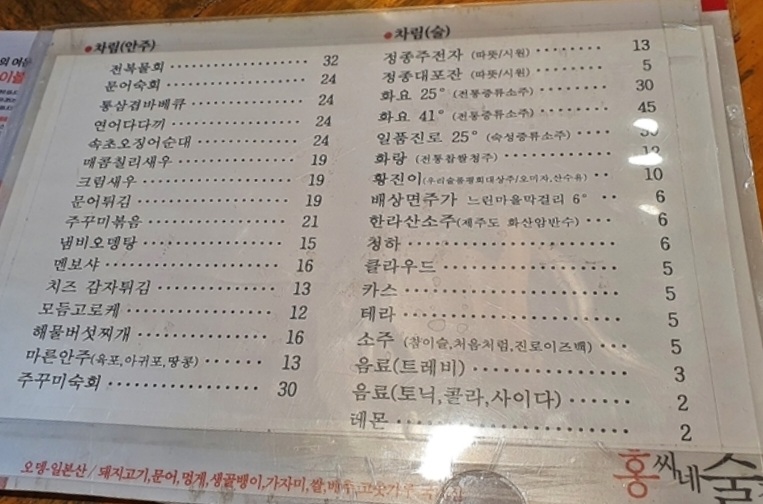 차림(안주)
전복물회 32
문어숙회 24
통삼겹바베큐 24
연어다다끼 24
속초오징어순대 24
매콤칠리새우 19
크림새우 19
문어튀김 19
주꾸미볶음 21
냄비오뎅탕 15
멘보샤 16
치즈 감자튀김 13
모듬고로케 12
해물버섯찌개 16
마른안주(육포,아귀포,땅콩) 13
주꾸미숙회 30
차림(술)
정종주전자 (따뜻/시원) 13
정종대포잔 (따뜻/시원) 5
화요 25° (전통증류소주) 30
화요 41° (전통증류소주) 45
일품진로 25° (숙성증류소주)
화랑 (전통찹쌀청주) 12
황진이(우리술품평회대상주/오미자,산수유) 10
배상면주가 느린마을막걸리 6° 6
한라산소주(제주도 화산암반수) 6
청하 6
클라우드 5
카스 5
테라 5
소주 (참이슬,처음처럼,진로이즈백) 5
음료(트레비) 3
음료(토닉,콜라,사이다) 2
레몬 2
오뎅-일본산 / 돼지고기,문어,멍게,생골뱅이,가자미,쌀,배추,고춧가루
홍씨네술